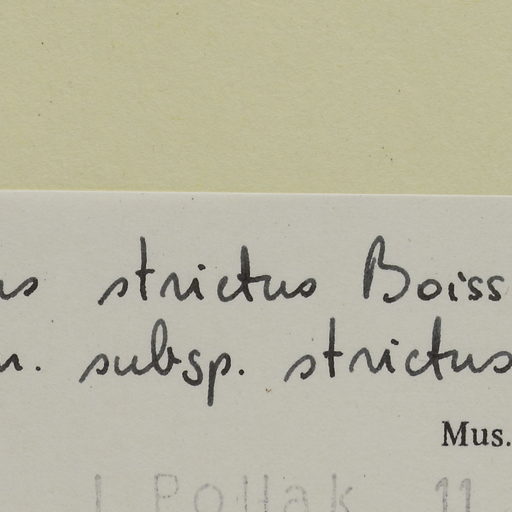 us strictus Boiss
r. subsp. strictus
Mus.
J Pollak 11